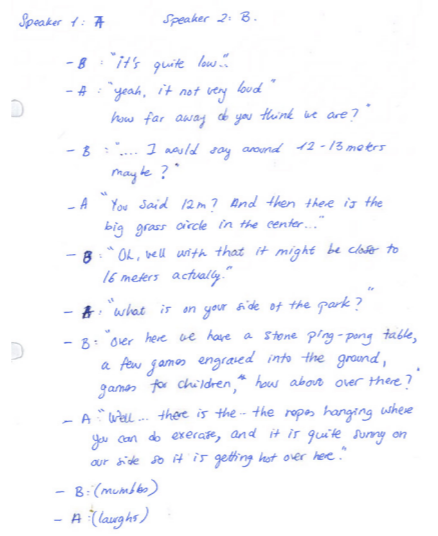 Speaker 1: A Speaker 2: B.
- B: "it's quite low..."
- A: "yeah, it not very loud"
how far away do you think we are?"
- B: ".... I would say around 12-13 meters
maybe?"
- A "You said 12m? And then there is the
big grass circle in the center..."
- B: "Oh, well with that it might be closer to
16 meters actually."
- A: "what is on your side of the park?"
- B: "Over here we have a stone ping-pong table,
a few games engraved into the ground,
games for children," how about over there?"
- A "Well... there is the - the ropes hanging where
you can do exercise, and it is quite sunny on
our side so it is getting hot over here."
- B: (mumbles)
- A: (laughs)